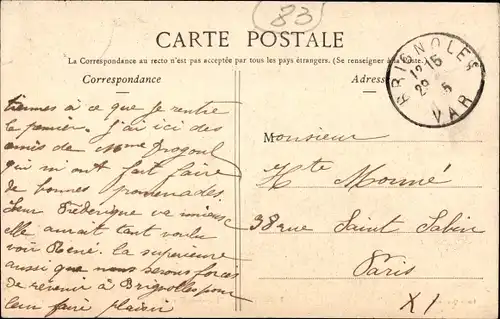 83
CARTE POSTALE
La Correspondance au recto n'est pas acceptée par tous les pays étrangers. (Se renseigner à la Poste.)
Correspondance
Adresse
BRIGNOLES
12 15
29 5
VAR
tiennes à ce que je rentre
le premier. J'ai ici des
amis de Mme
qui m'ont fait faire
de bonnes promenades.
Leur Fréderique va mieux
elle aurait tant voulu
voir René. La superieure
aussi que nous serons forces
de revenir à Brignolles pour
leur faire plaisir
Monsieur
Hte Monné
38 rue Saint Sabin
Paris
XI